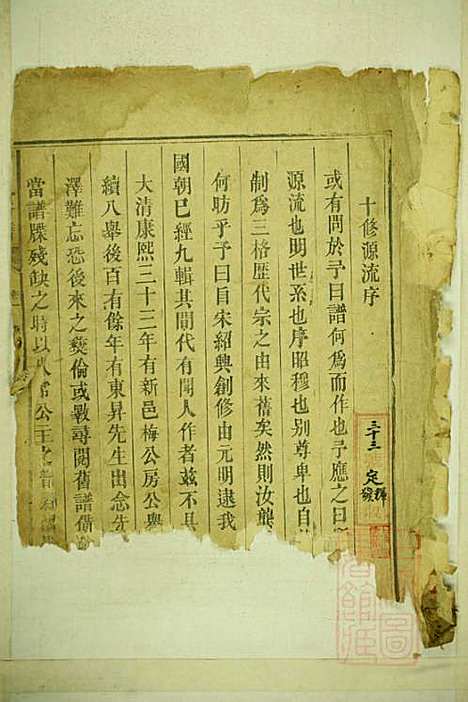 十修源流序
或有問於予曰譜何爲而作也予應之曰
源流也明世系也序昭穆也别尊卑也自
制爲三格歷代宗之由來舊矣然則汝龔
何昉乎予曰自宋紹興創修由元明逮我
國朝已經九輯其間代有聞人作者兹不具
大清康熙三十三年有新邑梅公房公舉
續八舉後百有餘年有東昇先生出念先
澤難忘恐後來之彝倫或斁尋閱舊譜備
當譜牒殘缺之時以
三十三
定
圖